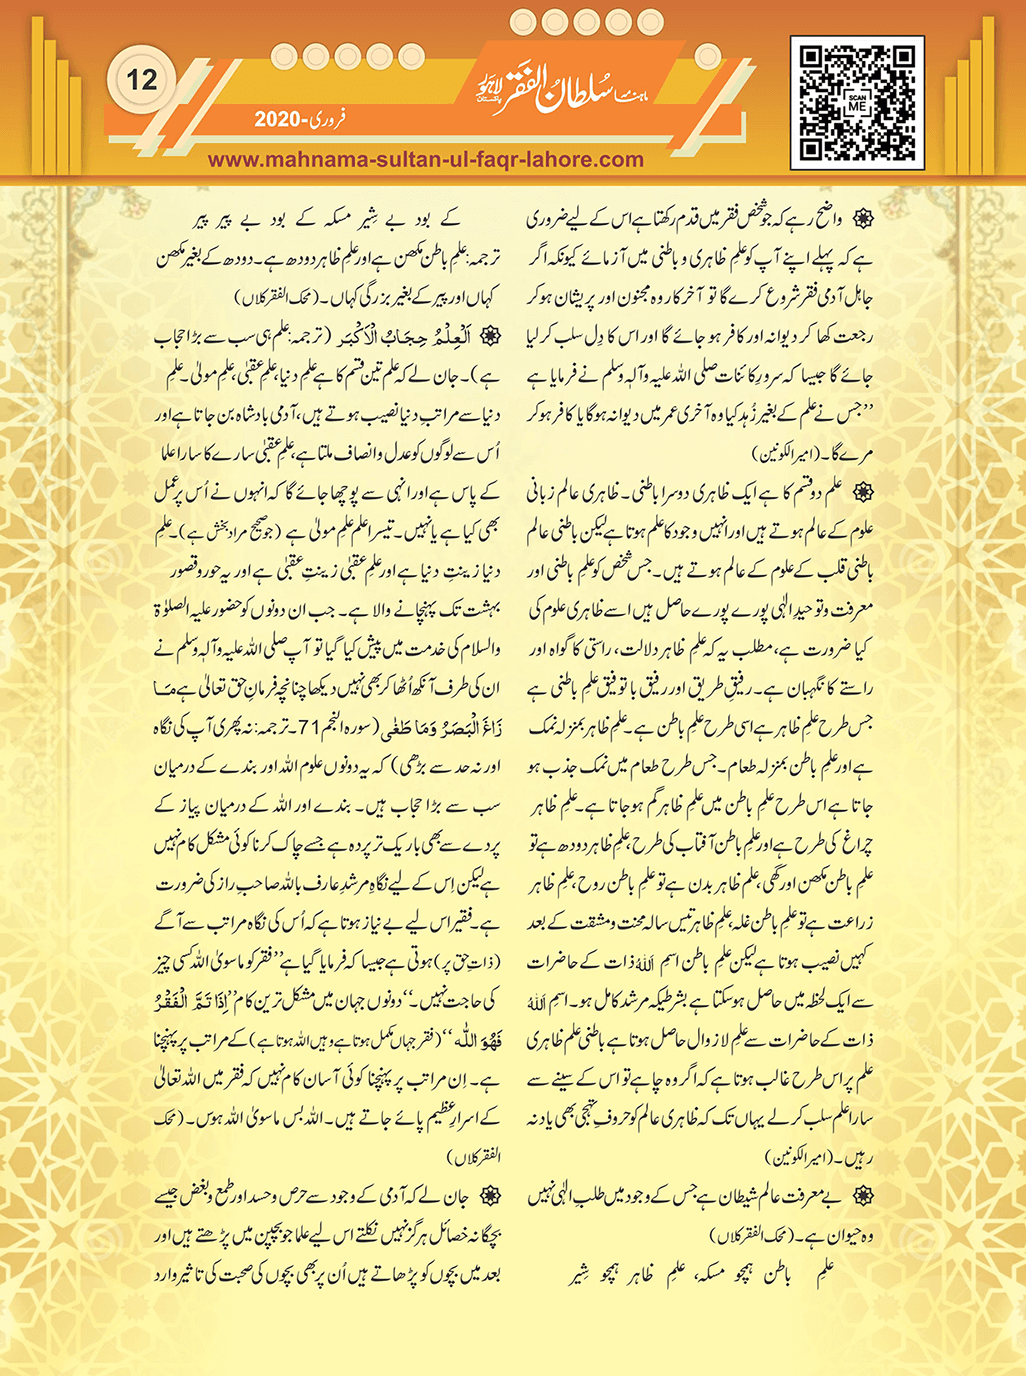 12
ماہنامہ سلطان الفقر لاہور پاکستان
فروری-2020
SCAN ME
www.mahnama-sultan-ul-faqr-lahore.com
واضح رہے کہ جو شخص فقر میں قدم رکھتا ہے اس کے لیے ضروری
ہے کہ پہلے اپنے آپ کو علمِ ظاہری و باطنی میں آزمائے کیونکہ اگر
جاہل آدمی فقر شروع کرے گا تو آخر کار وہ مجنون اور پریشان ہو کر
رجعت کھا کر دیوانہ اور کافر ہو جائے گا اور اس کا دِل سلب کر لیا
جائے گا جیسا کہ سرورِ کائنات صلی اللہ علیہ وآلہٖ وسلم نے فرمایا ہے
”جس نے علم کے بغیر زُہد کیا وہ آخری عمر میں دیوانہ ہوگا یا کافر ہو کر
مرے گا۔ (امیر الکونین)
علم دو قسم کا ہے ایک ظاہری دوسرا باطنی۔ ظاہری عالم زبانی
علوم کے عالم ہوتے ہیں اور انہیں وجود کا علم ہوتا ہے لیکن باطنی عالم
باطنی قلب کے علوم کے عالم ہوتے ہیں۔ جس شخص کو علمِ باطنی اور
معرفت و توحیدِ الٰہی پورے پورے حاصل ہیں اسے ظاہری علوم کی
کیا ضرورت ہے، مطلب یہ کہ علمِ ظاہر دلالت، راستی کا گواہ اور
راستے کا نگہبان ہے۔ رفیقِ طریق اور رفیق با توفیق علمِ باطنی ہے
جس طرح علمِ ظاہر ہے اسی طرح علمِ باطن ہے۔ علمِ ظاہر بمنزلہ نمک
ہے اور علمِ باطن بمنزلہ طعام۔ جس طرح طعام میں نمک جذب ہو
جاتا ہے اس طرح علمِ باطن میں علمِ ظاہر گم ہو جاتا ہے۔ علمِ ظاہر
چراغ کی طرح ہے اور علمِ باطن آفتاب کی طرح، علمِ ظاہر دودھ ہے تو
علمِ باطن مکھن اور گھی، علمِ ظاہر بدن ہے تو علمِ باطن روح، علمِ ظاہر
زراعت ہے تو علمِ باطن غلہ، علمِ ظاہر تیس سالہ محنت و مشقت کے بعد
کہیں نصیب ہوتا ہے لیکن علمِ باطن اسمِ اللہ ذات کے حاضرات
سے ایک لحظہ میں حاصل ہو سکتا ہے بشرطیکہ مرشد کامل ہو۔ اسمِ اللہ
ذات کے حاضرات سے علمِ لازوال حاصل ہوتا ہے باطنی علم ظاہری
علم پر اس طرح غالب ہوتا ہے کہ اگر وہ چاہے تو اس کے سینے سے
سارا علم سلب کر لے یہاں تک کہ ظاہری عالم کو حروفِ تہجی بھی یاد نہ
رہیں۔ (امیر الکونین)
بے معرفت عالم شیطان ہے جس کے وجود میں طلبِ الٰہی نہیں
وہ حیوان ہے۔ (محک الفقر کلاں)
علمِ باطن ہمچو مسکہ، علمِ ظاہر ہمچو شِیر
کے بود بے شِیر مسکہ کے بود بے پیر پیر
ترجمہ: علمِ باطن مکھن ہے اور علمِ ظاہر دودھ ہے۔ دودھ کے بغیر مکھن
کہاں اور پیر کے بغیر بزرگی کہاں۔ (محک الفقر کلاں)
اَلْعِلْمُ حِجَابُ الْاَکْبَر (ترجمہ: علم ہی سب سے بڑا حجاب
ہے)۔ جان لے کہ علم تین قسم کا ہے علمِ دنیا، علمِ عقبیٰ، علمِ مولیٰ۔ علمِ
دنیا سے مراتبِ دنیا نصیب ہوتے ہیں، آدمی بادشاہ بن جاتا ہے اور
اُس سے لوگوں کو عدل و انصاف ملتا ہے، علمِ عقبیٰ سارے کا سارا علما
کے پاس ہے اور انہی سے پوچھا جائے گا کہ انہوں نے اُس پر عمل
بھی کیا ہے یا نہیں۔ تیسرا علم علمِ مولیٰ ہے (جو صحیح مراد بخش ہے)۔ علمِ
دنیا زینتِ دنیا ہے اور علمِ عقبیٰ زینتِ عقبیٰ ہے اور یہ حور و قصور
بہشت تک پہنچانے والا ہے۔ جب ان دونوں کو حضور علیہ الصلوٰۃ
والسلام کی خدمت میں پیش کیا گیا تو آپ صلی اللہ علیہ وآلہٖ وسلم نے
ان کی طرف آنکھ اُٹھا کر بھی نہیں دیکھا چنانچہ فرمانِ حق تعالیٰ ہے مَا
زَاغَ الْبَصَرُ وَمَا طَغٰی (سورہ النجم 71۔ ترجمہ: نہ پھری آپ کی نگاہ
اور نہ حد سے بڑھی) کہ یہ دونوں علوم اللہ اور بندے کے درمیان
سب سے بڑا حجاب ہیں۔ بندے اور اللہ کے درمیان پیاز کے
پردے سے بھی باریک تر پردہ ہے جسے چاک کرنا کوئی مشکل کام نہیں
ہے لیکن اِس کے لیے نگاہِ مرشد عارف باللہ صاحبِ راز کی ضرورت
ہے۔ فقیر اس لیے بے نیاز ہوتا ہے کہ اُس کی نگاہ مراتب سے آگے
(ذاتِ حق پر) ہوتی ہے جیسا کہ فرمایا گیا ہے ”فقر کو ماسویٰ اللہ کسی چیز
کی حاجت نہیں۔“ دونوں جہان میں مشکل ترین کام ”اِذَا تَمَّ الْفَقْرُ
فَھُوَ اللّٰہ“ (فقر جہاں مکمل ہوتا ہے وہیں اللہ ہوتا ہے) کے مراتب پر پہنچنا
ہے۔ اِن مراتب پر پہنچنا کوئی آسان کام نہیں کہ فقر میں اللہ تعالیٰ
کے اسرارِ عظیم پائے جاتے ہیں۔ اللہ بس ماسویٰ اللہ ہوس۔ (محک
الفقر کلاں)
جان لے کہ آدمی کے وجود سے حرص و حسد اور طمع و بغض جیسے
بچگانہ خصائل ہرگز نہیں نکلتے اس لیے علما جو بچپن میں پڑھتے ہیں اور
بعد میں بچوں کو پڑھاتے ہیں اُن پر بھی بچوں کی صحبت کی تاثیر وارد